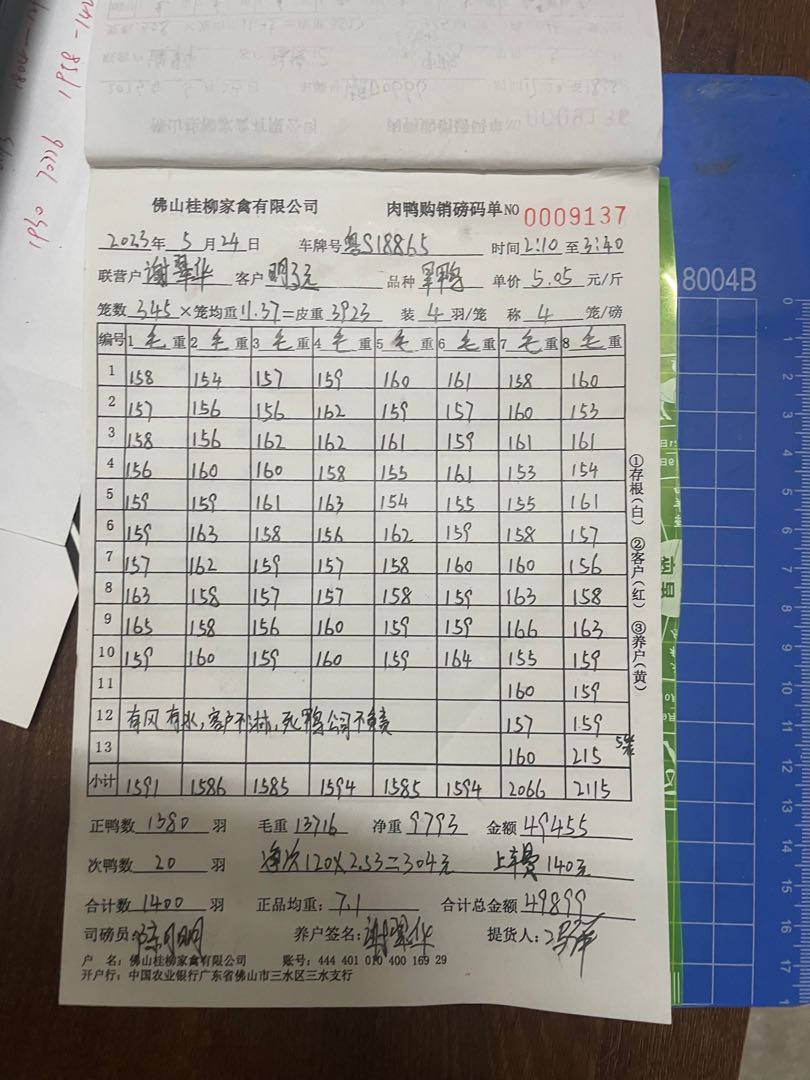 1930 7226 1958-
佛山桂柳家禽有限公司 肉鸭购销磅码单NO 0009137
2023年 5月24日 车牌号粤S18865 时间2:10至3:40
联营户谢翠华 客户明记 品种 单价 5.05 元/斤
笼数 345 ×笼均重11.37=皮重3923 装 4 羽/笼 称 4 笼/磅
编号 1毛重 2毛重 3毛重 4毛重 5毛重 6毛重 7毛重 8毛重
1 158 154 157 159 160 161 158 160
2 157 156 156 162 159 157 160 153
3 158 156 162 162 161 159 161 161
4 156 160 160 158 155 161 153 154
5 159 159 161 163 154 155 155 161
6 159 163 158 156 162 159 158 157
7 157 162 159 157 158 160 160 156
8 163 158 157 157 158 159 163 158
9 165 158 156 160 159 159 166 163
10 159 160 159 160 159 164 155 159
11 160 159
12 有风有水,客户不淋,死鸭公司不负责 157 159
13 160 215 5笼
小计 1591 1586 1585 1594 1585 1594 2066 2115
正鸭数 1380 羽 毛重 13716 净重 9793 金额 49455
次鸭数 20 羽 净次120×2.53=304元 上车费140元
合计数 1400 羽 正品均重: 7.1 合计总金额 49899
司磅员: 养户签名:谢翠华 提货人:
户 名:佛山桂柳家禽有限公司 账号:444 401 010 400 169 29
开户行:中国农业银行广东省佛山市三水区三水支行
①存根(白) ②客户(红) ③养户(黄)
8004B
0 1 2 3 4 5 6 7 8 9 10 11 12 13 14 15 16 17